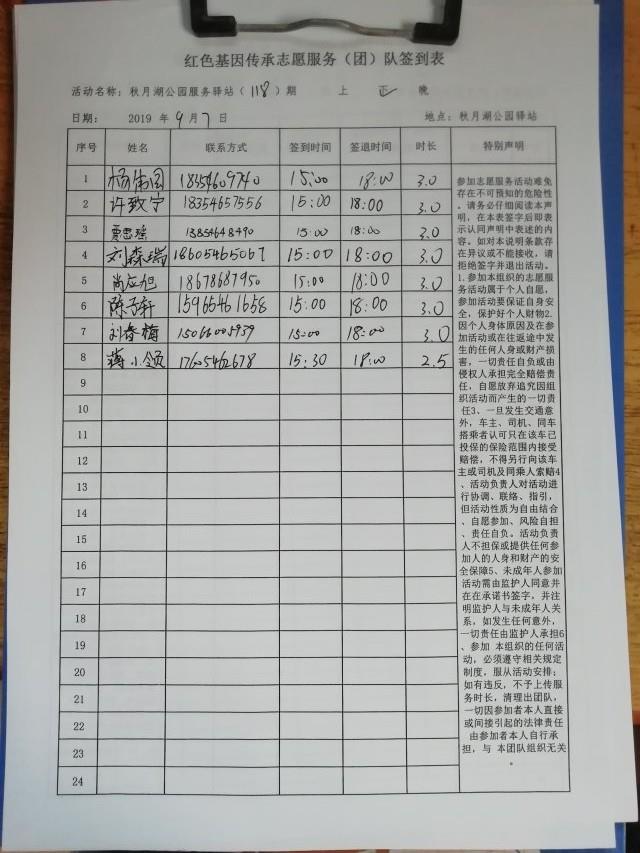 红色基因传承志愿服务（团）队签到表
活动名称：秋月湖公园服务驿站（118）期 上 正 晚
日期： 2019 年 9 月 7 日 地点：秋月湖公园驿站
序号 姓名 联系方式 签到时间 签退时间 时长 特别声明
1 杨伟国 18354609740 15:00 18:00 3.0
2 许致宁 18354657556 15:00 18:00 3.0
3 15:00 18:00 3.0
4 刘森瑞 18605465067 15:00 18:00 3.0
5 尚应旭 18678687950 15:00 18:00 3.0
6 陈子轩 15965461658 15:00 18:00 3.0
7 刘春梅 15066005939 15:00 18:00 3.0
8 蒋小领 17605462678 15:30 18:00 2.5
9
10
11
12
13
14
15
16
17
18
19
20
21
22
23
24
参加志愿服务活动难免
存在不可预知的危险性
。请务必仔细阅读本声
明，在本表签字后即表
示认同声明中表述的内
容。如对本说明条款存
在异议或不能接收，请
拒绝签字并退出活动。
1.参加本组织的志愿服
务活动属于个人自愿，
参加活动要保证自身安
全，保护好个人财物2.
因个人身体原因及在参
加活动或在往返途中发
生的任何人身或财产损
害，一切责任自负或由
侵权人承担完全赔偿责
任，自愿放弃追究因组
织活动而产生的一切责
任3、一旦发生交通意
外，车主、司机、同车
搭乘者认可只在该车已
投保的保险范围内接受
赔偿，不得另行向该车
主或司机及同乘人索赔4
、活动负责人对活动进
行协调、联络、指引，
但活动性质为自由结合
、自愿参加、风险自担
、责任自负。活动负责
人不担保或提供任何参
加人的人身和财产的安
全保障5、未成年人参加
活动需由监护人同意并
在在承诺书签字，并注
明监护人与未成年人关
系，如发生任何意外，
一切责任由监护人承担6
、参加 本组织的任何活
动，必须遵守相关规定
制度，服从活动安排；
如有违反，不予上传服
务时长，清理出团队，
一切因参加者本人直接
或间接引起的法律责任
由参加者本人自行承
担，与 本团队组织无关
。